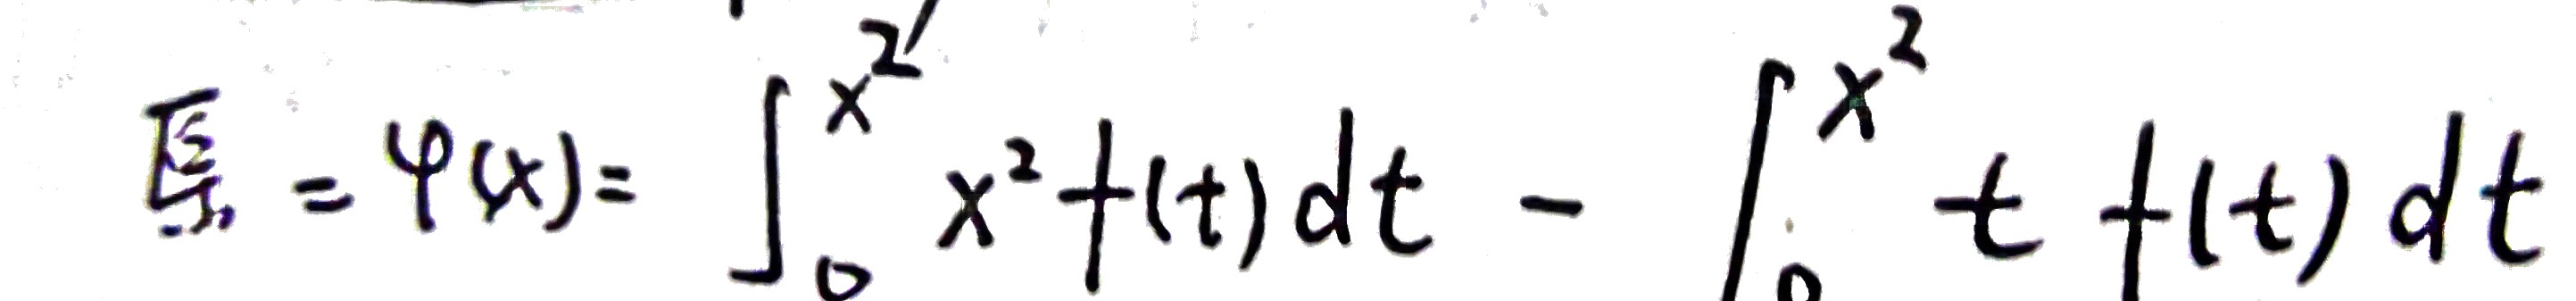 原 = φ(x) = ∫₀^{x²} x² f(t) dt − ∫₀^{x²} t f(t) dt